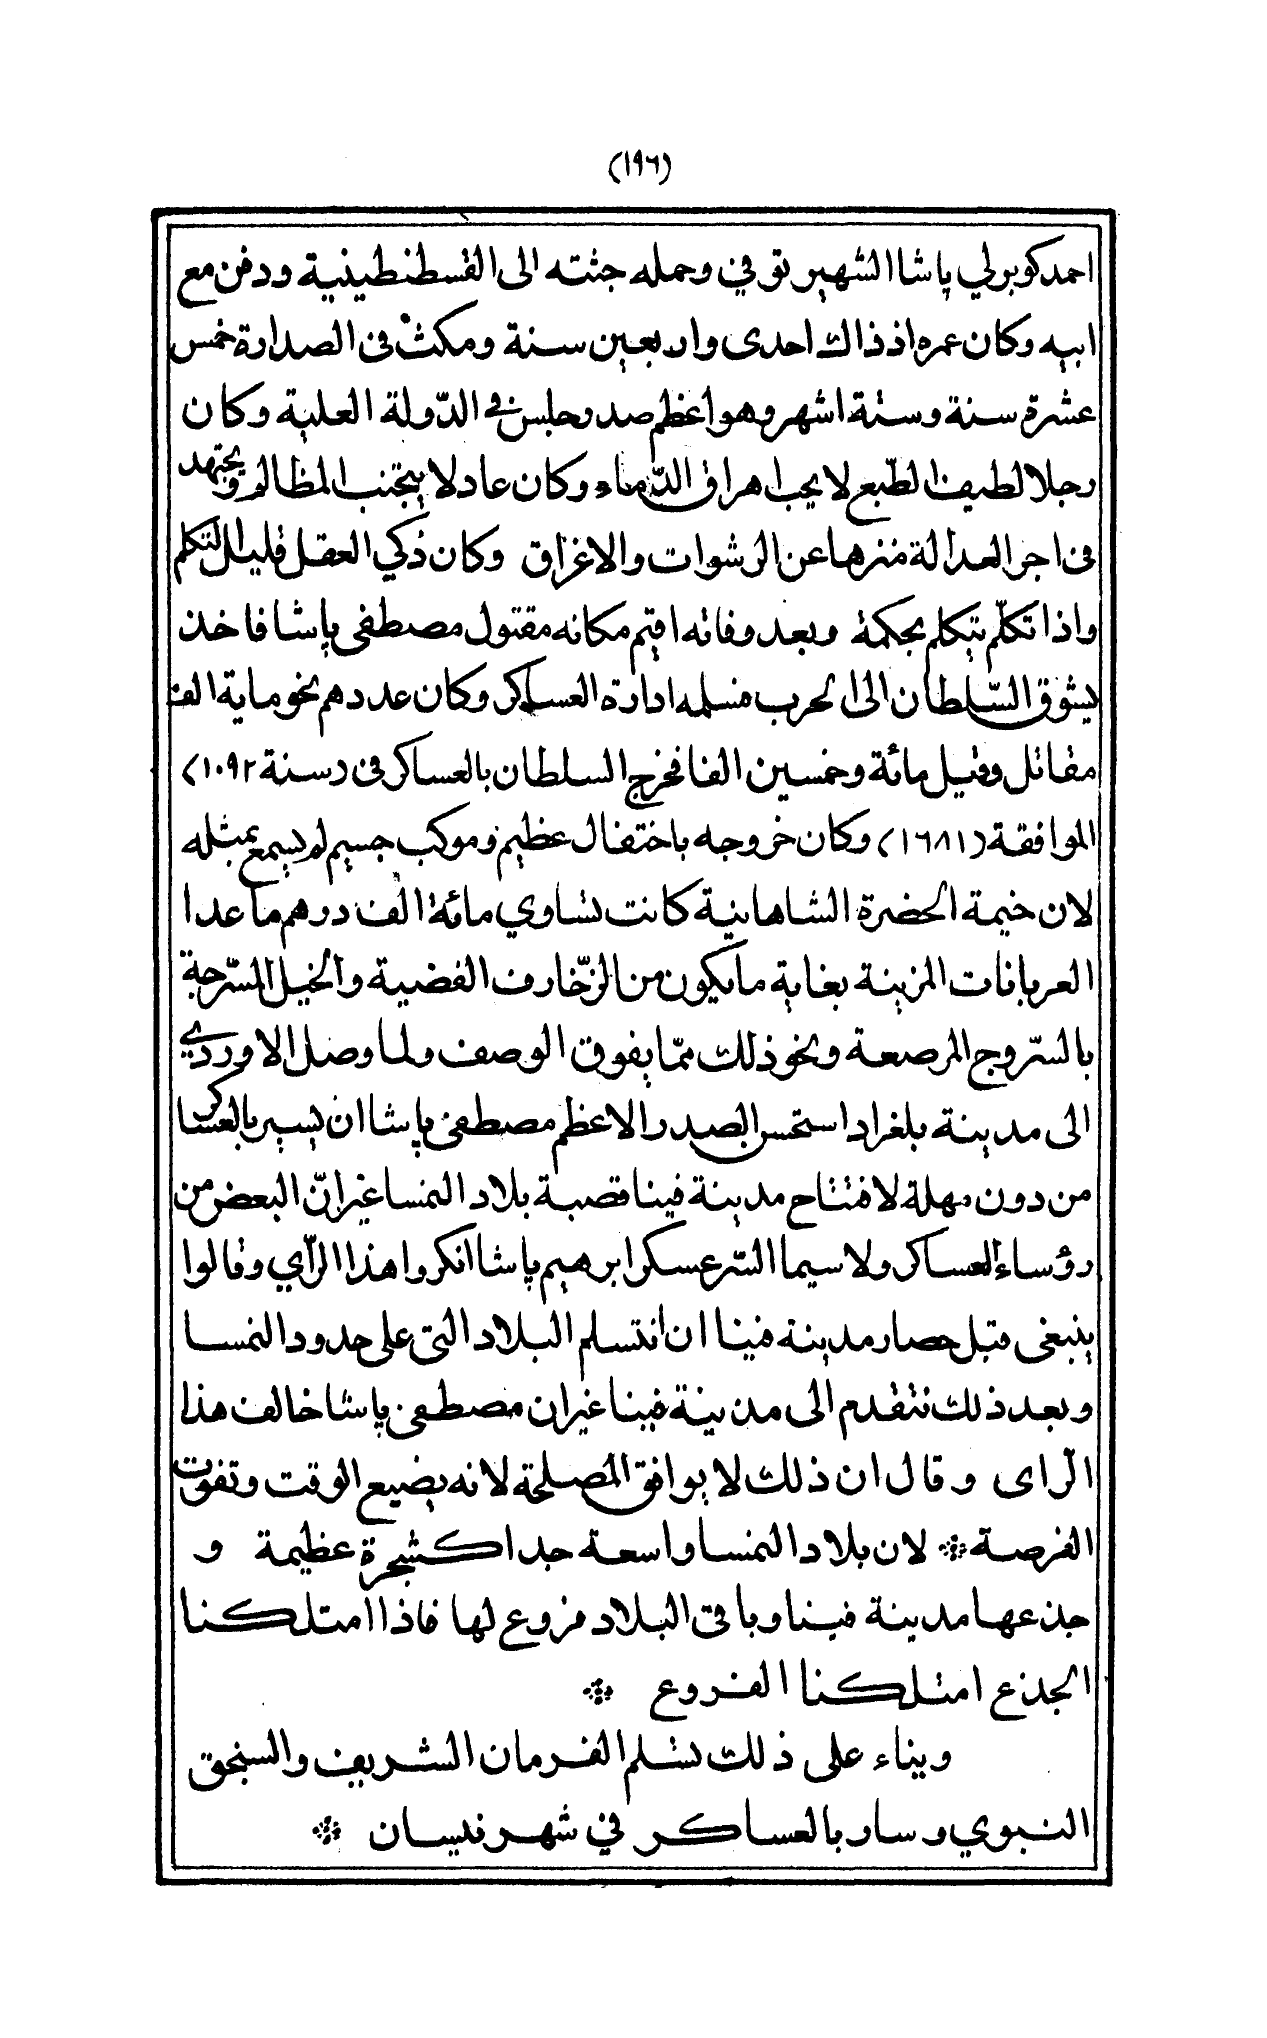 (١٩٦)
احمد كوبرلي پاشا الشهير توفي وحمله جثته الى القسطنطينية ودفن مع
ابيه وكان عمره اذ ذاك احدى واربعين سنة ومكث فى الصدارة خمس
عشرة سنة وستة اشهر وهو اعظم صدر جلس في الدّولة العلية وكان
رجلا لطيف الطّبع لا يحب اهراق الدّماء وكان عادلا يتجنب المظالم ويجتهد
فى اجر العدالة منزها عن الرشوات والاغراق وكان ذكي العقل قليل التكلم
واذا تكلّم يتكلم بحكمة وبعد وفاته اقيم مكانه مقتول مصطفى پاشا فاخذ
يشوق السّلطان الى الحرب فسلمه ادارة العساكر وكان عددهم نحو ماية الف
مقاتل وقيل مائة وخمسين الفا فخرج السلطان بالعساكر فى (سنة ١٠٩٢)
الموافقة (١٦٨١) وكان خروجه باختفال عظيم وموكب جسيم لم يسمع بمثله
لان خيمة الحضرة الشاهانية كانت تساوي مائة الف درهم ما عدا
العربانات المزينة بغاية ما يكون من الزّخارف الفضية والخيل المسّرجة
بالسّروج المرصعة ونحو ذلك ممّا يفوق الوصف ولما وصل الاوردي
الى مدينة بلغراد استحسن الصدر الاعظم مصطفى پاشا ان يسير بالعساكر
من دون مهلة لافتتاح مدينة فينا قصبة بلاد النمسا غير انّ البعض من
رؤساء العساكر ولا سيما السّرعسكر ابرهيم پاشا انكروا هذا الرّأي وقالوا
ينبغى قبل حصار مدينة فينا ان نتسلم البلاد التى على حدود النمسا
وبعد ذلك نتقدم الى مدينة فينا غير ان مصطفى پاشا خالف هذا
الرّاى وقال ان ذلك لا يوافق المصلحة لانه يضيع الوقت وتفوت
الفرصة * لان بلاد النمسا واسعة جدا كشجرة عظيمة و
جذعها مدينة فينا وباقى البلاد فروع لها فاذا امتلكنا
الجذع امتلكنا الفروع *
وبناء على ذلك تسلم الفرمان الشريف والسنجق
النبوي وسار بالعساكر في شهر نيسان *